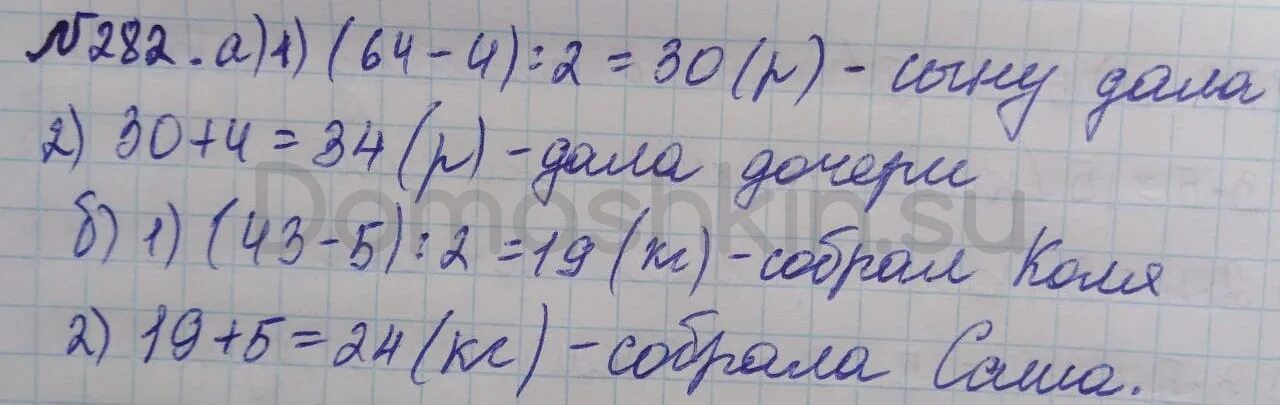 №282. а) 1) (64-4):2=30(р) - сыну дала
2) 30+4=34(р) - дала дочери
Domoshkin.su
б) 1) (43-5):2=19(кг) - собрал Коля
2) 19+5=24(кг) - собрала Саша.